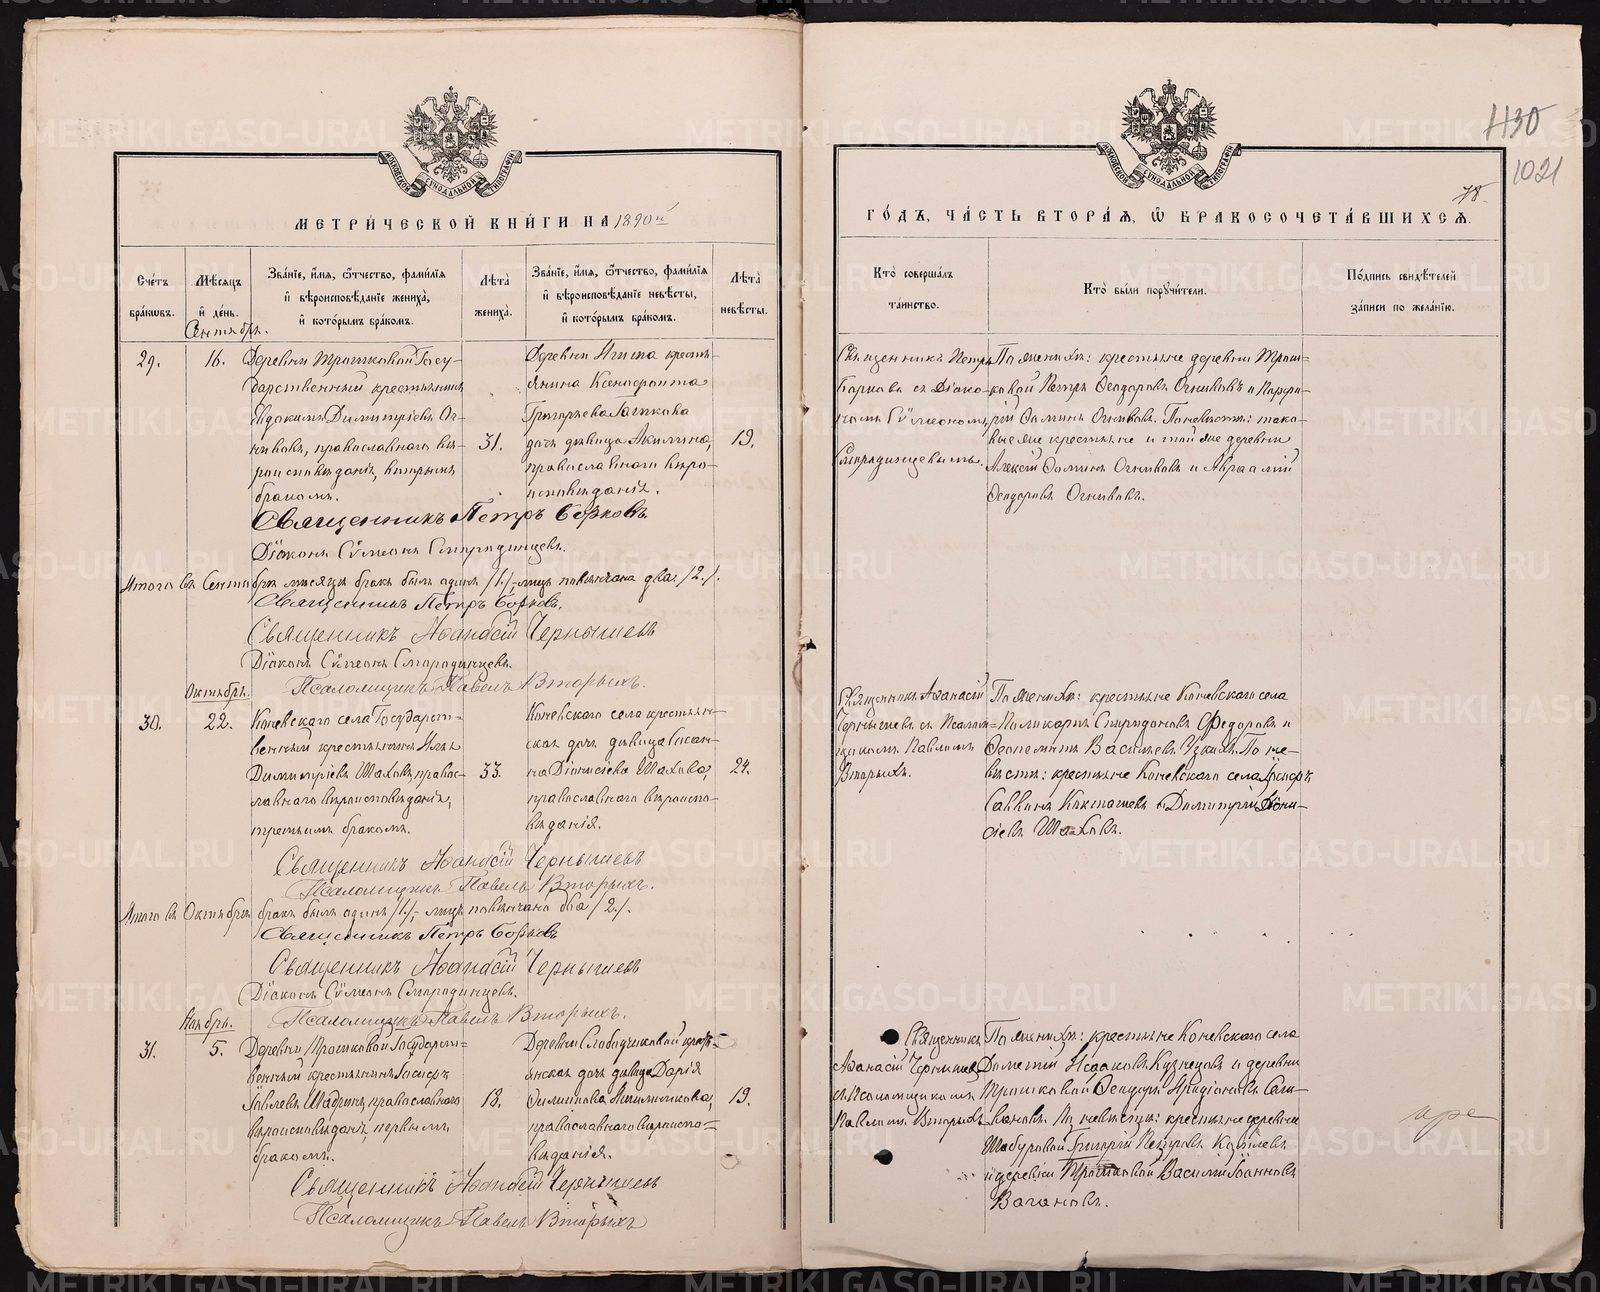 МЕТРИ́ЧЕСКОЙ КНИ́ГИ НА 1890й
Сче́тъ бра́кѡвъ.
Мѣ́сяцъ и҆ де́нь.
Зва́нїе, и҆́мя, ѻ҆́тчество, фами́лїя и҆ вѣроисповѣ́данїе жениха̀, и҆ кото́рымъ бра́комъ.
Лѣта̀ жениха̀.
Зва́нїе, и҆́мя, ѻ҆́тчество, фами́лїя и҆ вѣроисповѣ́данїе невѣ́сты, и҆ кото́рымъ бра́комъ.
Лѣта̀ невѣ́сты.
Сентябрь.
29.
16.
Деревни Трошковой Госу-
дарственный крестьянинъ
Евдокимъ Димитріевъ Ог-
нивовъ, православнаго вѣ-
роисповѣданія, вторымъ
бракомъ.
31.
Деревни крестья-
янина Ксенофонта
Григорьева
дочь дѣвица Акилина,
православнаго вѣро-
исповѣданія.
19.
Священникъ Петръ Борковъ
Діаконъ Сѵмеонъ Смородинцевъ.
Итого въ Сентябрѣ мѣсяцѣ бракъ былъ одинъ /1/, лицъ повѣнчано два /2/.
Священникъ Петръ Борковъ.
Священникъ Аѳанасій Чернышевъ
Діаконъ Сѵмеонъ Смородинцевъ.
Псаломщикъ Павелъ Вторыхъ.
Октябрь.
30.
22.
Коневскаго села Государст-
венный крестьянинъ Илья
Димитріевъ Шаховъ, правос-
лавнаго вѣроисповѣданія,
третьимъ бракомъ.
33.
Коневскаго села крестьян-
ская дочь дѣвица Сосан-
на Діонисіева Шахова,
православнаго вѣроиспо-
вѣданія.
24.
Священникъ Аѳанасій Чернышевъ
Псаломщикъ Павелъ Вторыхъ.
Итого въ Октябрѣ бракъ былъ одинъ /1/, лицъ повѣнчано два /2/.
Священникъ Петръ Борковъ
Священникъ Аѳанасій Чернышевъ
Діаконъ Сѵмеонъ Смородинцевъ.
Псаломщикъ Павелъ Вторыхъ.
Ноябрь.
31.
5.
Деревни Трошковой Государст-
венный крестьянинъ Іосифъ
Іовлевъ Шадринъ, православнаго
вѣроисповѣданія, первымъ
бракомъ.
18.
Деревни Слободчиковой кресть-
янская дочь дѣвица Дарія
Филиппова
православнаго вѣроиспо-
вѣданія.
19.
Священникъ Аѳанасій Чернышевъ
Псаломщикъ Павелъ Вторыхъ
1021
78.
ГО́ДЪ, ЧА́СТЬ ВТОРА́Я, Ѽ БРАКОСОЧЕТА́ВШИХСЯ.
Кто̀ соверша́лъ та́инство.
Кто̀ бы́ли порꙋчи́тели.
По́дпись свидѣ́телей за́писи по жела́нію.
Священникъ Петръ
Борковъ съ Діако-
номъ Сѵмеономъ
Смородинцевымъ.
По женихѣ: крестьяне деревни Трош-
ковой Петръ Ѳеодоровъ Огнивовъ и Порфи-
рій Ѳоминъ Огнивовъ. По невѣстѣ: тако-
вые же крестьяне и той же деревни
Алексій Ѳоминъ Огнивовъ и Авраамій
Ѳеодоровъ Огнивовъ.
Священникъ Аѳанасій
Чернышевъ съ Псалом-
щикомъ Павломъ
Вторыхъ.
По женихѣ: крестьяне Коневскаго села
Поликарпъ Спиридоновъ Ѳедоровъ и
Ѳеопемптъ Васильевъ Узкихъ. По не-
вѣстѣ: крестьяне Коневскаго села Іосифъ
Саввинъ Коктышевъ и Димитрій Діони-
сіевъ Шаховъ.
Священникъ
Аѳанасій Чернышевъ
съ Псаломщикомъ
Павломъ Вторыхъ
По женихѣ: крестьяне Коневскаго села
Дометій Исааковъ Кузнецовъ и деревни
Трошковой Ѳеодоръ Иродіоновъ Сали-
вановъ. По невѣстѣ: крестьяне деревни
Шабуровой Григорій Петровъ
и деревни Трошковой Василій Іоанновъ
Вагановъ.
METRIKI.GASO-URAL.RU